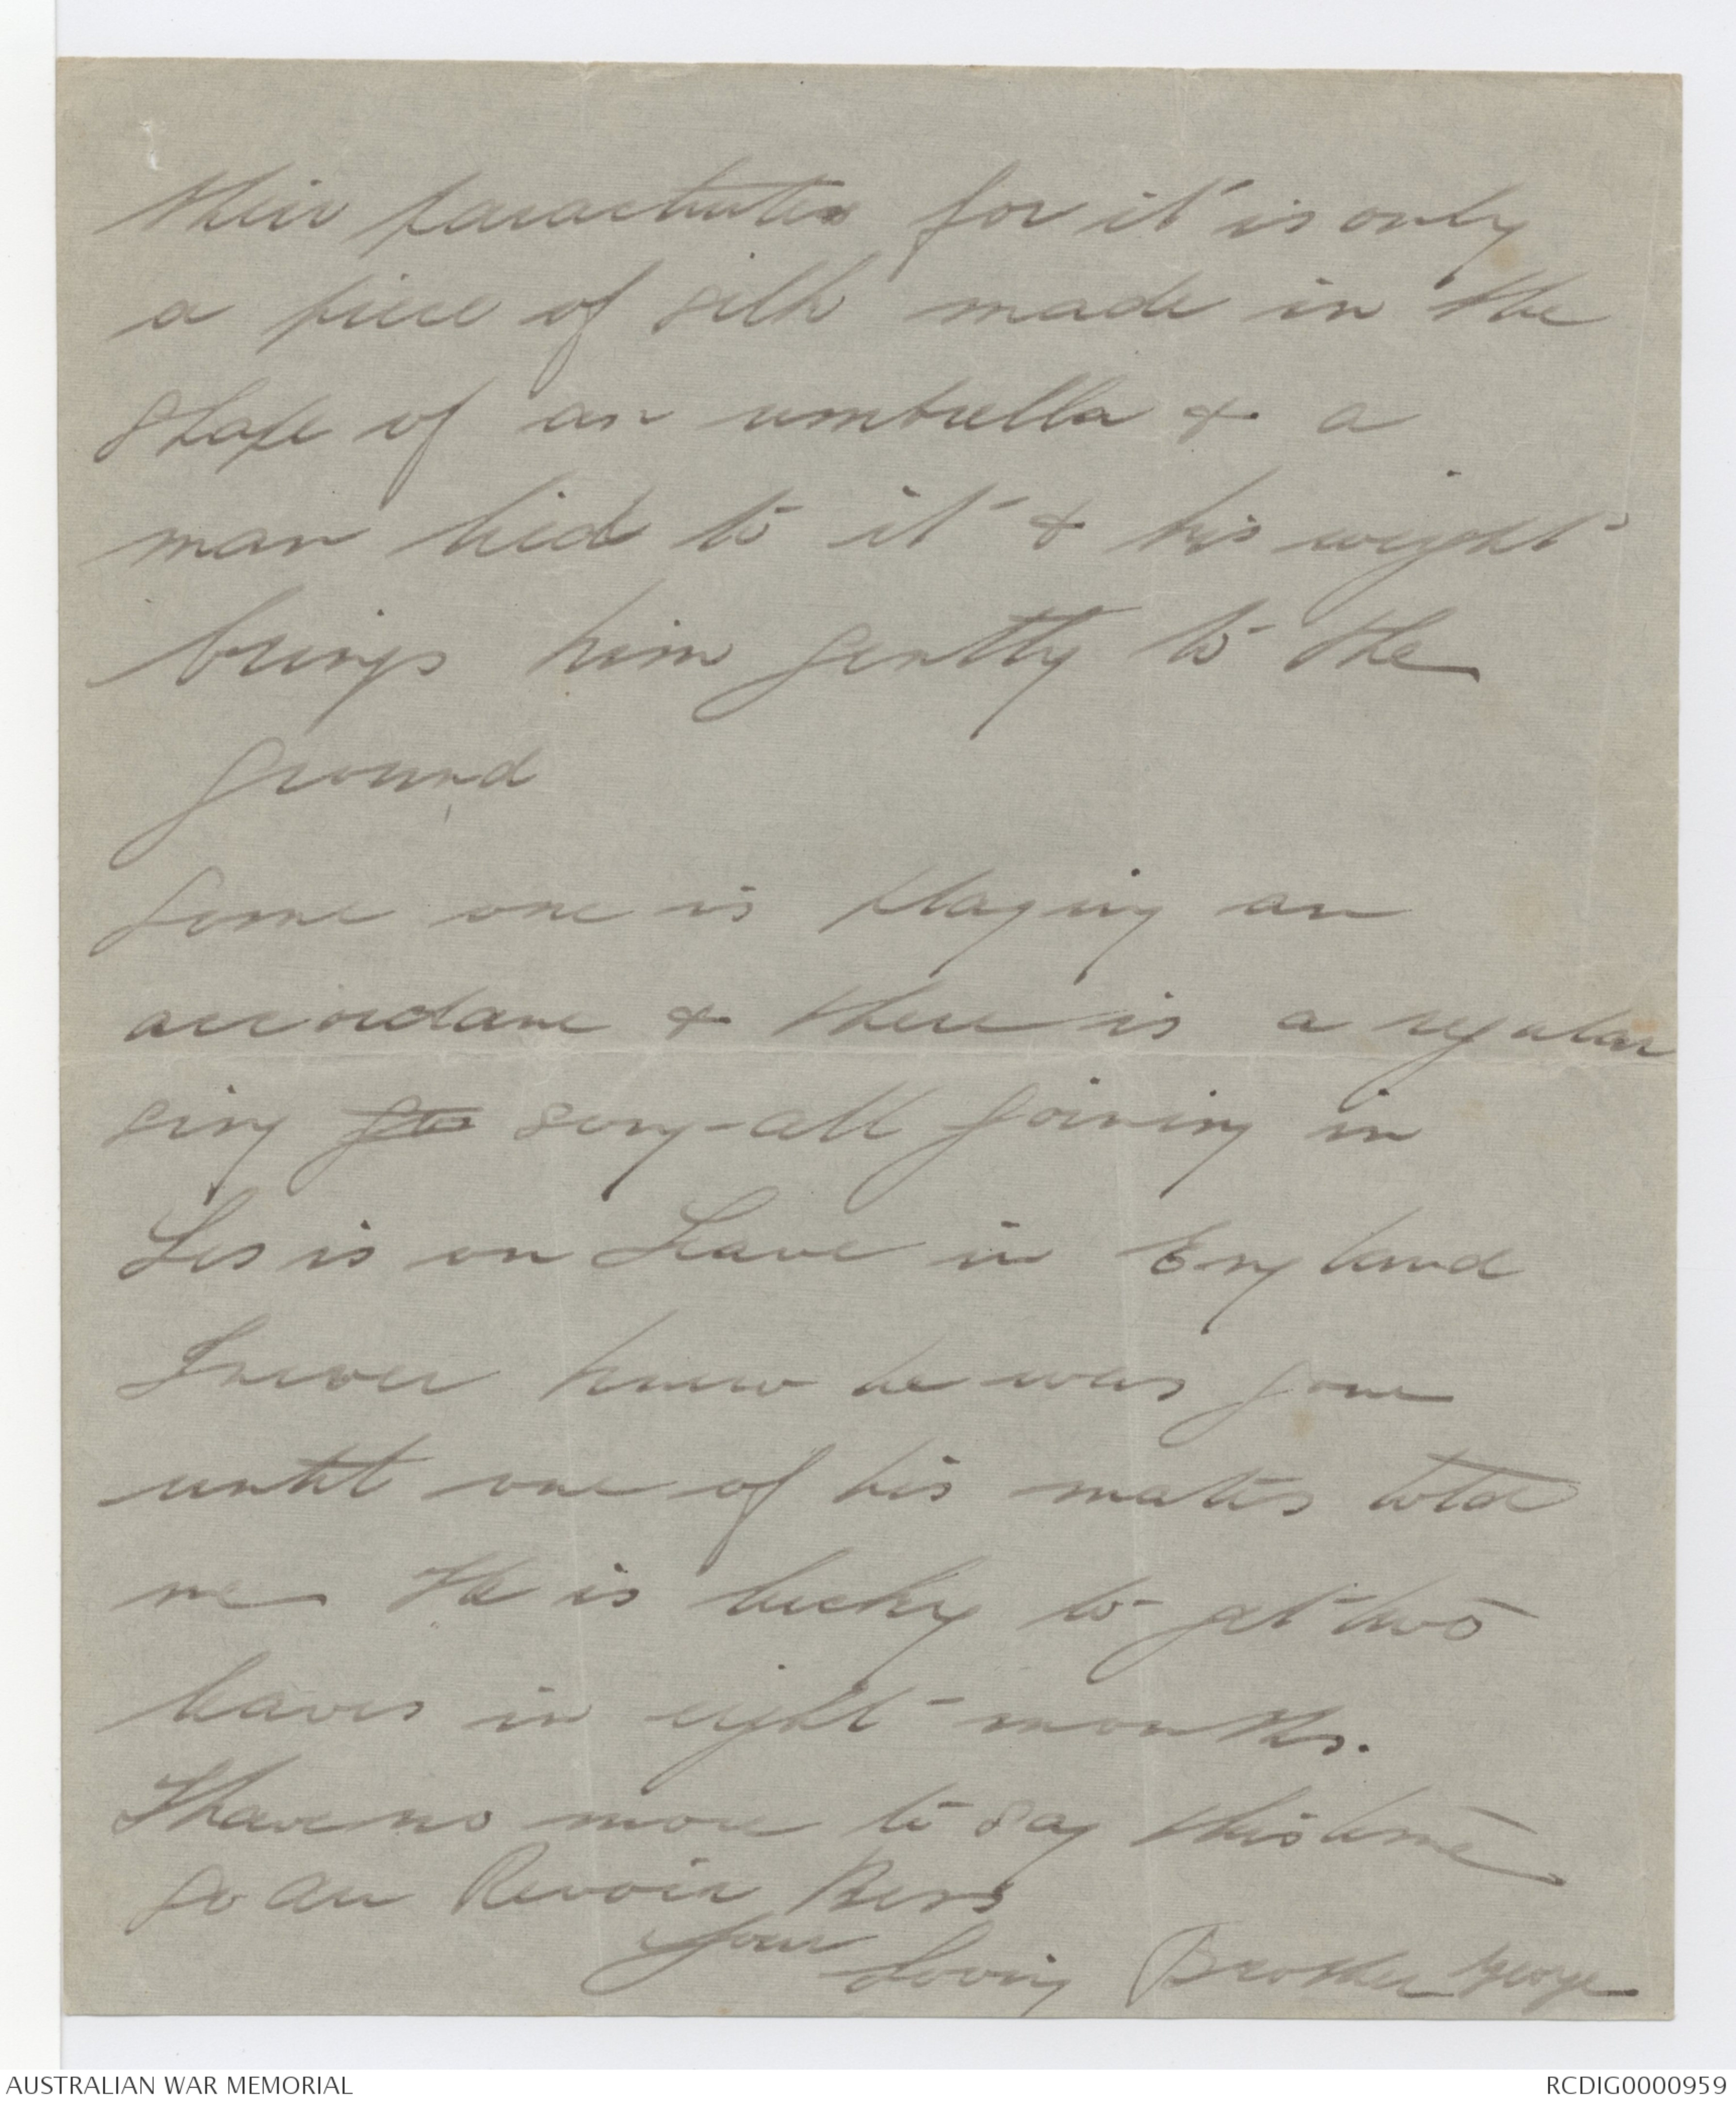 their parachutes for it is only
a piece of silk made in the
shape of an umbrella & a
man tied to it & his weight
brings him gently to the
ground
Some one is playing an
accordane & there is a regular
sing song - all joining in
Les is on Leave in England
I never knew he was gone
until one of his mates told
me He is lucky to get two
leaves in eight months.
I have no more to say this time
so Au Revoir Bess
Your
loving Brother George
AUSTRALIAN WAR MEMORIAL
RCDIG0000959